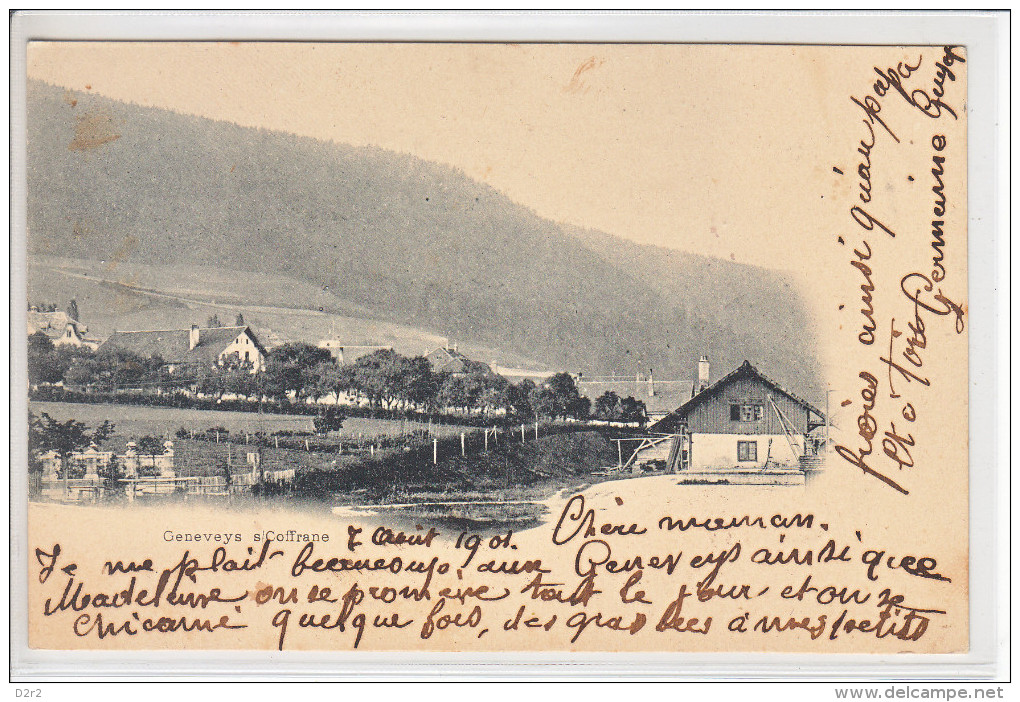 Geneveys s/Coffrane
7 Août 1901.
Chère maman.
Je me plait beaucoup. aux Geneveys ainsi que
Madeleine on se promène tout le jour. et on se
chicane quelque fois, des gras becs à mes petits
frères ainsi qu'au papa
et à toi Germaine
D2r2
www.delcampe.net